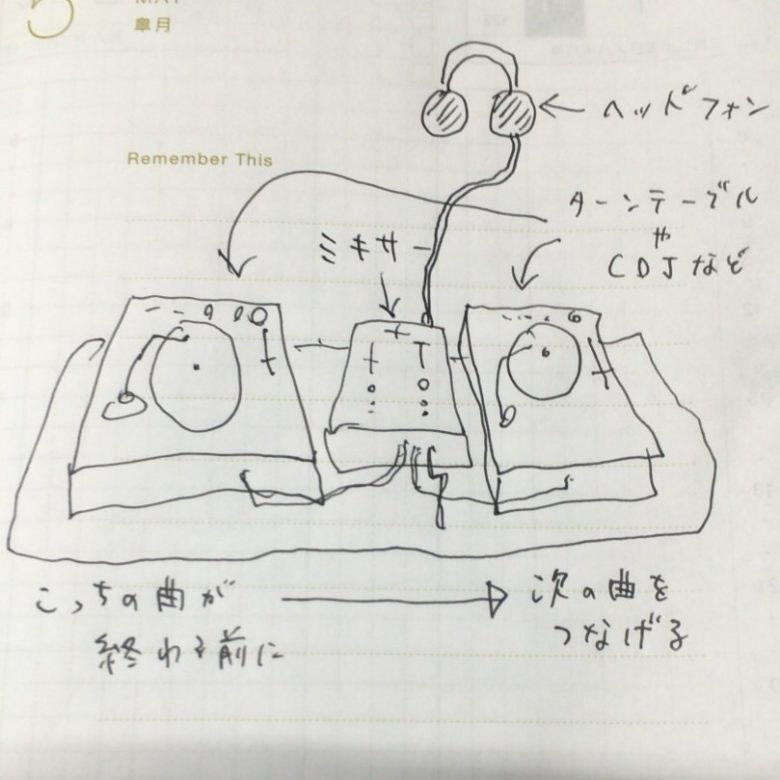 5 MAY
皐月
Remember This
ヘッドフォン
ターンテーブル
や
CDJなど
ミキサー
こっちの曲が
終わる前に
次の曲を
つなげる